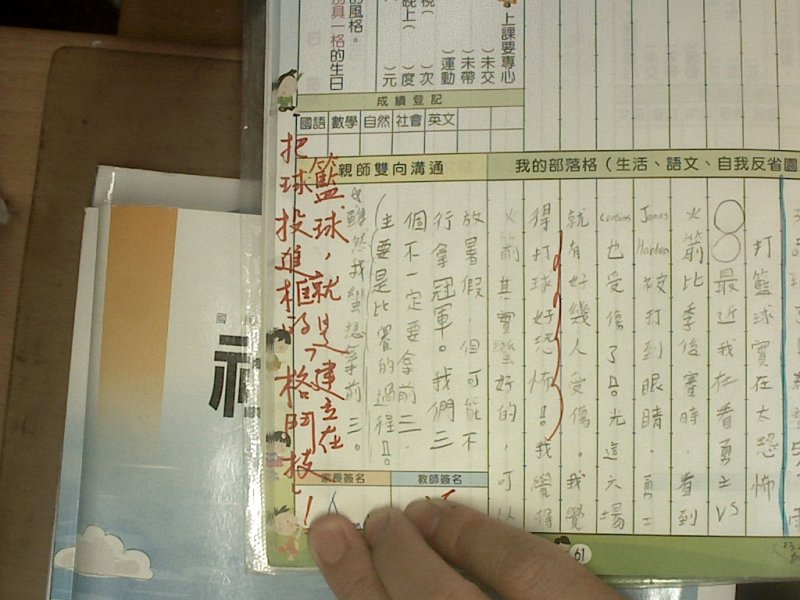 上課要專心
）未交
）未帶
）運動
）次
）度
）元
晚上（
的風格。
別具一格的生日
成績登記
國語 數學 自然 社會 英文
親師雙向溝通
我的部落格（生活、語文、自我反省園
打籃球實在太恐怖
○○最近我在看勇士VS
火箭比季後賽時，看到
James Harden被打到眼睛，勇士
Cousins也受傷了!。光這六場
就有好幾人受傷。我覺
得打球好恐怖!。我覺得
火箭其實蠻好的，可以
放暑假，但可能不
行拿冠軍。我們三
個不一定要拿前三，
主要是比賽的過程!。
雖然我蠻想拿前三。
籃球，就是建立在
把球投進框的「格鬥技」！
家長簽名
教師簽名
61